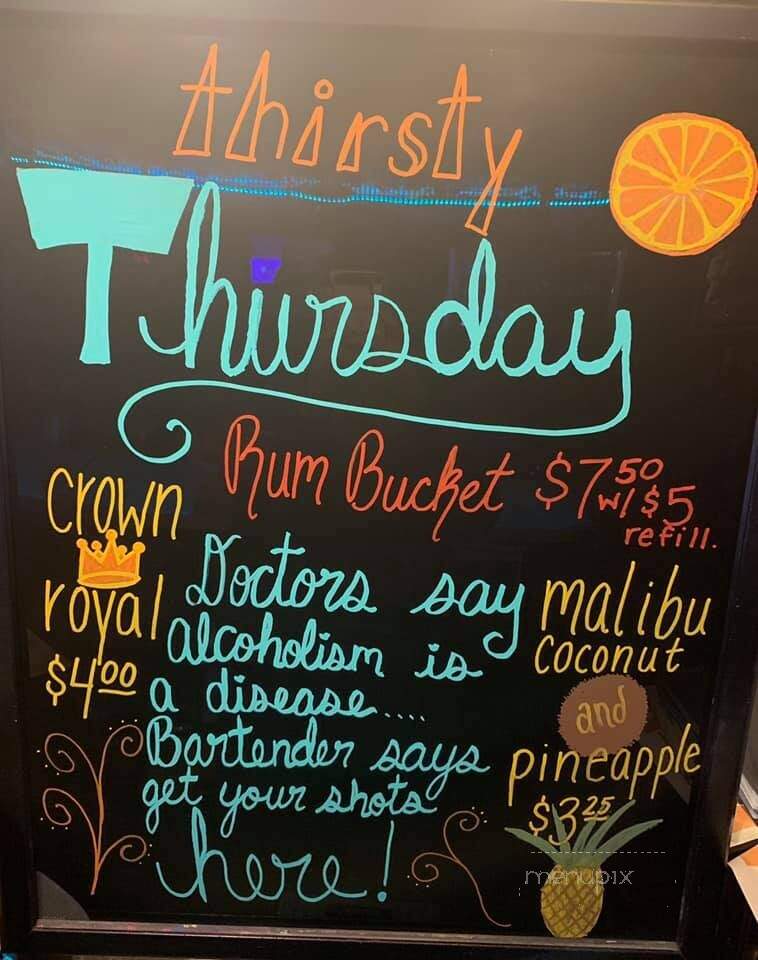 thirsty
Thursday
Rum Bucket $7.50
w/ $5
refill.
crown
royal
$4.00
Doctors say
alcoholism is
a disease....
Bartender says
get your shots
here!
malibu
coconut
and
pineapple
$3.25
menupix